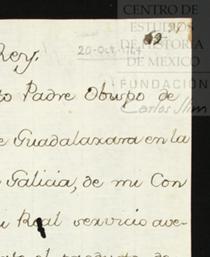 CENTRO DE
ESTUDIOS
DE HISTORIA
DE MEXICO
FUNDACIÓN
Carlos Slim
20-Oct-
Rey.
to Padre Obispo de
e Guadalaxara en la
Galicia, de mi Con
Real servicio ave-